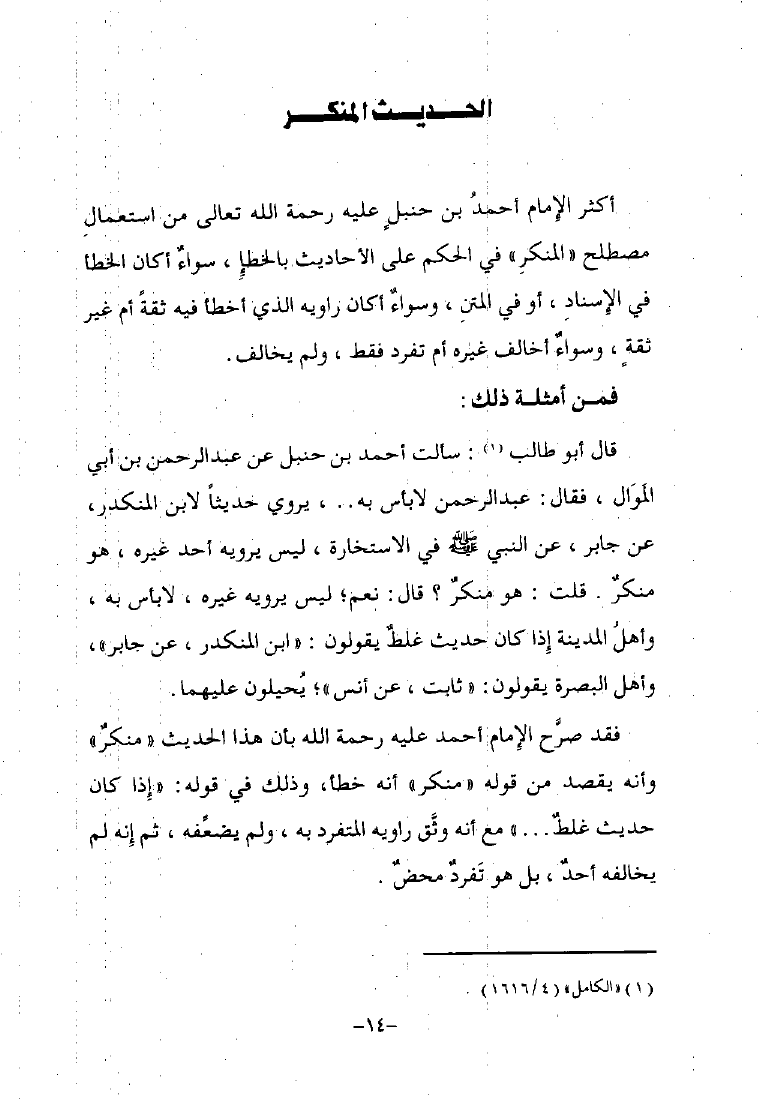 الحـــديـــث المنكـــر
أكثر الإمام أحمدُ بن حنبلٍ عليه رحمة الله تعالى من استعمالِ
مصطلح «المنكرِ» في الحكم على الأحاديث بالخطإِ ، سواءٌ أكان الخطأ
في الإسنادِ ، أو في المتنِ ، وسواءٌ أكان راويه الذي أخطأ فيه ثقةً أم غير
ثقةٍ ، وسواءٌ أخالف غيره أم تفرد فقط ، ولم يخالف.
فمـن أمثلـة ذلك :
قال أبو طالب (١) : سألت أحمد بن حنبل عن عبدالرحمن بن أبي
المَوَال ، فقال: عبدالرحمن لابأس به.. ، يروي حديثاً لابن المنكدر،
عن جابر ، عن النبي ﷺ في الاستخارة ، ليس يرويه أحد غيره ، هو
منكرٌ . قلت : هو منكرٌ ؟ قال: نعم؛ ليس يرويه غيره ، لابأس به ،
وأهلُ المدينة إذا كان حديث غلطٌ يقولون : «ابن المنكدر ، عن جابر»،
وأهل البصرة يقولون: «ثابت ، عن أنس»؛ يُحيلون عليهما.
فقد صرَّح الإمام أحمد عليه رحمة الله بأن هذا الحديث «منكرٌ»
وأنه يقصد من قوله «منكر» أنه خطأ، وذلك في قوله: «إذا كان
حديث غلطٌ...» مع أنه وثَّق راويه المتفرد به ، ولم يضعِّفه ، ثم إنه لم
يخالفه أحدٌ ، بل هو تَفردٌ محضٌ .
(١) «الكامل» (٤/١٦١٦) .
-١٤-